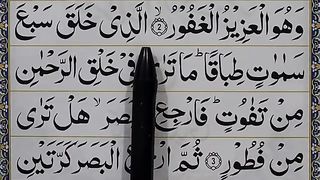 وَهُوَ الْعَزِيْزُ الْغَفُوْرُ ۙ ﴿2﴾ الَّذِىْ خَلَقَ سَبْعَ
سَمٰوٰتٍ طِبَاقًا ؕ مَا فِىْ خَلْقِ الرَّحْمٰنِ
مِنْ تَفٰوُتٍ ؕ فَارْجِعِ هَلْ تَرٰى
مِنْ فُطُوْرٍ ﴿3﴾ ثُمَّ الْبَصَرَ كَرَّتَيْنِ